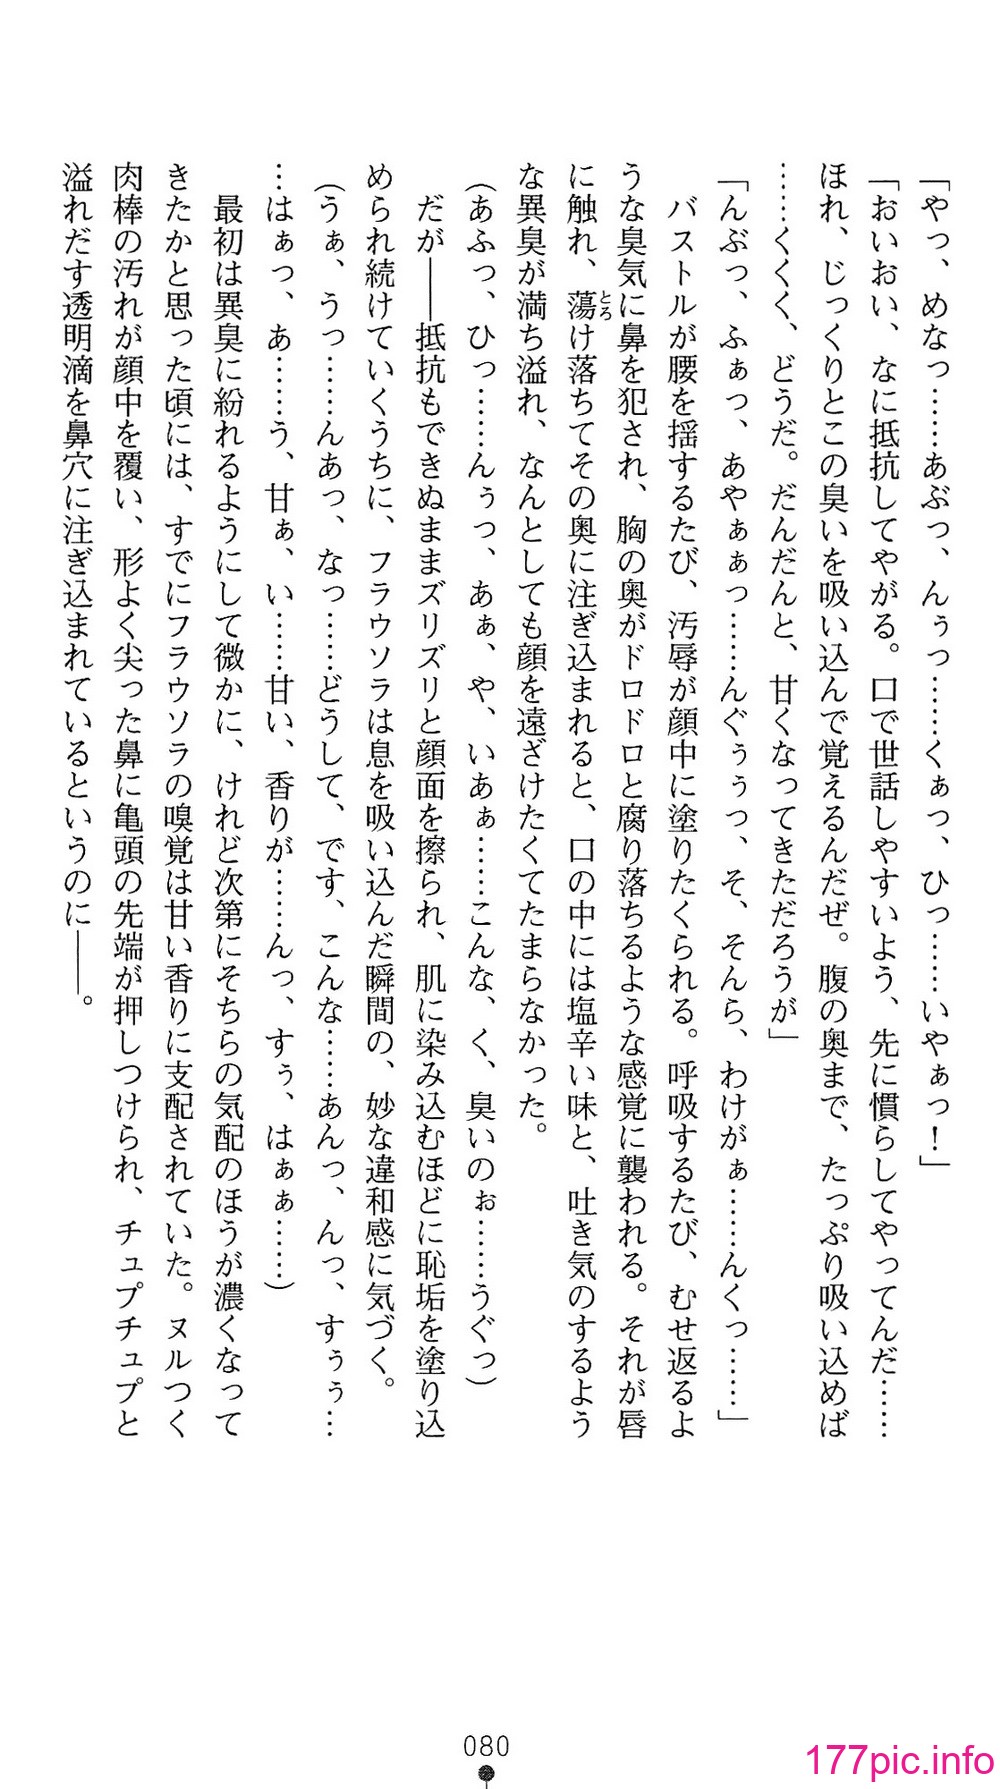 「やっ、めなっ……あぶっ、んぅっ……くぁっ、ひっ……いやぁっ！」
「おいおい、なに抵抗してやがる。口で世話しやすいよう、先に慣らしてやってんだ……
ほれ、じっくりとこの臭いを吸い込んで覚えるんだぜ。腹の奥まで、たっぷり吸い込めば
……くくく、どうだ。だんだんと、甘くなってきただろうが」
「んぶっ、ふぁっ、あやぁぁっ……んぐぅぅっ、そ、そんら、わけがぁ……んくっ……」
バストルが腰を揺するたび、汚辱が顔中に塗りたくられる。呼吸するたび、むせ返るよ
うな臭気に鼻を犯され、胸の奥がドロドロと腐り落ちるような感覚に襲われる。それが唇
に触れ、蕩とろけ落ちてその奥に注ぎ込まれると、口の中には塩辛い味と、吐き気のするよう
な異臭が満ち溢れ、なんとしても顔を遠ざけたくてたまらなかった。
（あふっ、ひっ……んぅっ、あぁ、や、いあぁ……こんな、く、臭いのぉ……うぐっ）
だが――抵抗もできぬままズリズリと顔面を擦られ、肌に染み込むほどに恥垢を塗り込
められ続けていくうちに、フラウソラは息を吸い込んだ瞬間の、妙な違和感に気づく。
（うぁ、うっ……んあっ、なっ……どうして、です、こんな……あんっ、んっ、すぅぅ…
…はぁっ、あ……う、甘ぁ、い……甘い、香りが……んっ、すぅ、はぁぁ……）
最初は異臭に紛れるようにして微かに、けれど次第にそちらの気配のほうが濃くなって
きたかと思った頃には、すでにフラウソラの嗅覚は甘い香りに支配されていた。ヌルつく
肉棒の汚れが顔中を覆い、形よく尖った鼻に亀頭の先端が押しつけられ、チュプチュプと
溢れだす透明滴を鼻穴に注ぎ込まれているというのに――。
080
177pic.info